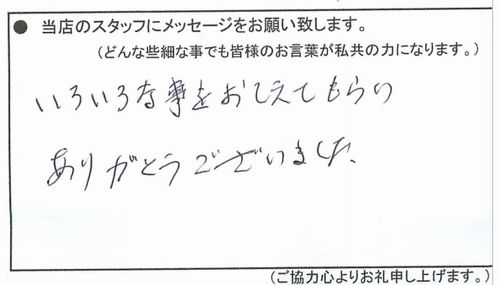 ● 当店のスタッフにメッセージをお願い致します。
（どんな些細な事でも皆様のお言葉が私共の力になります。）
いろいろな事をおしえてもらい
ありがとうございました。
（ご協力心よりお礼申し上げます。）